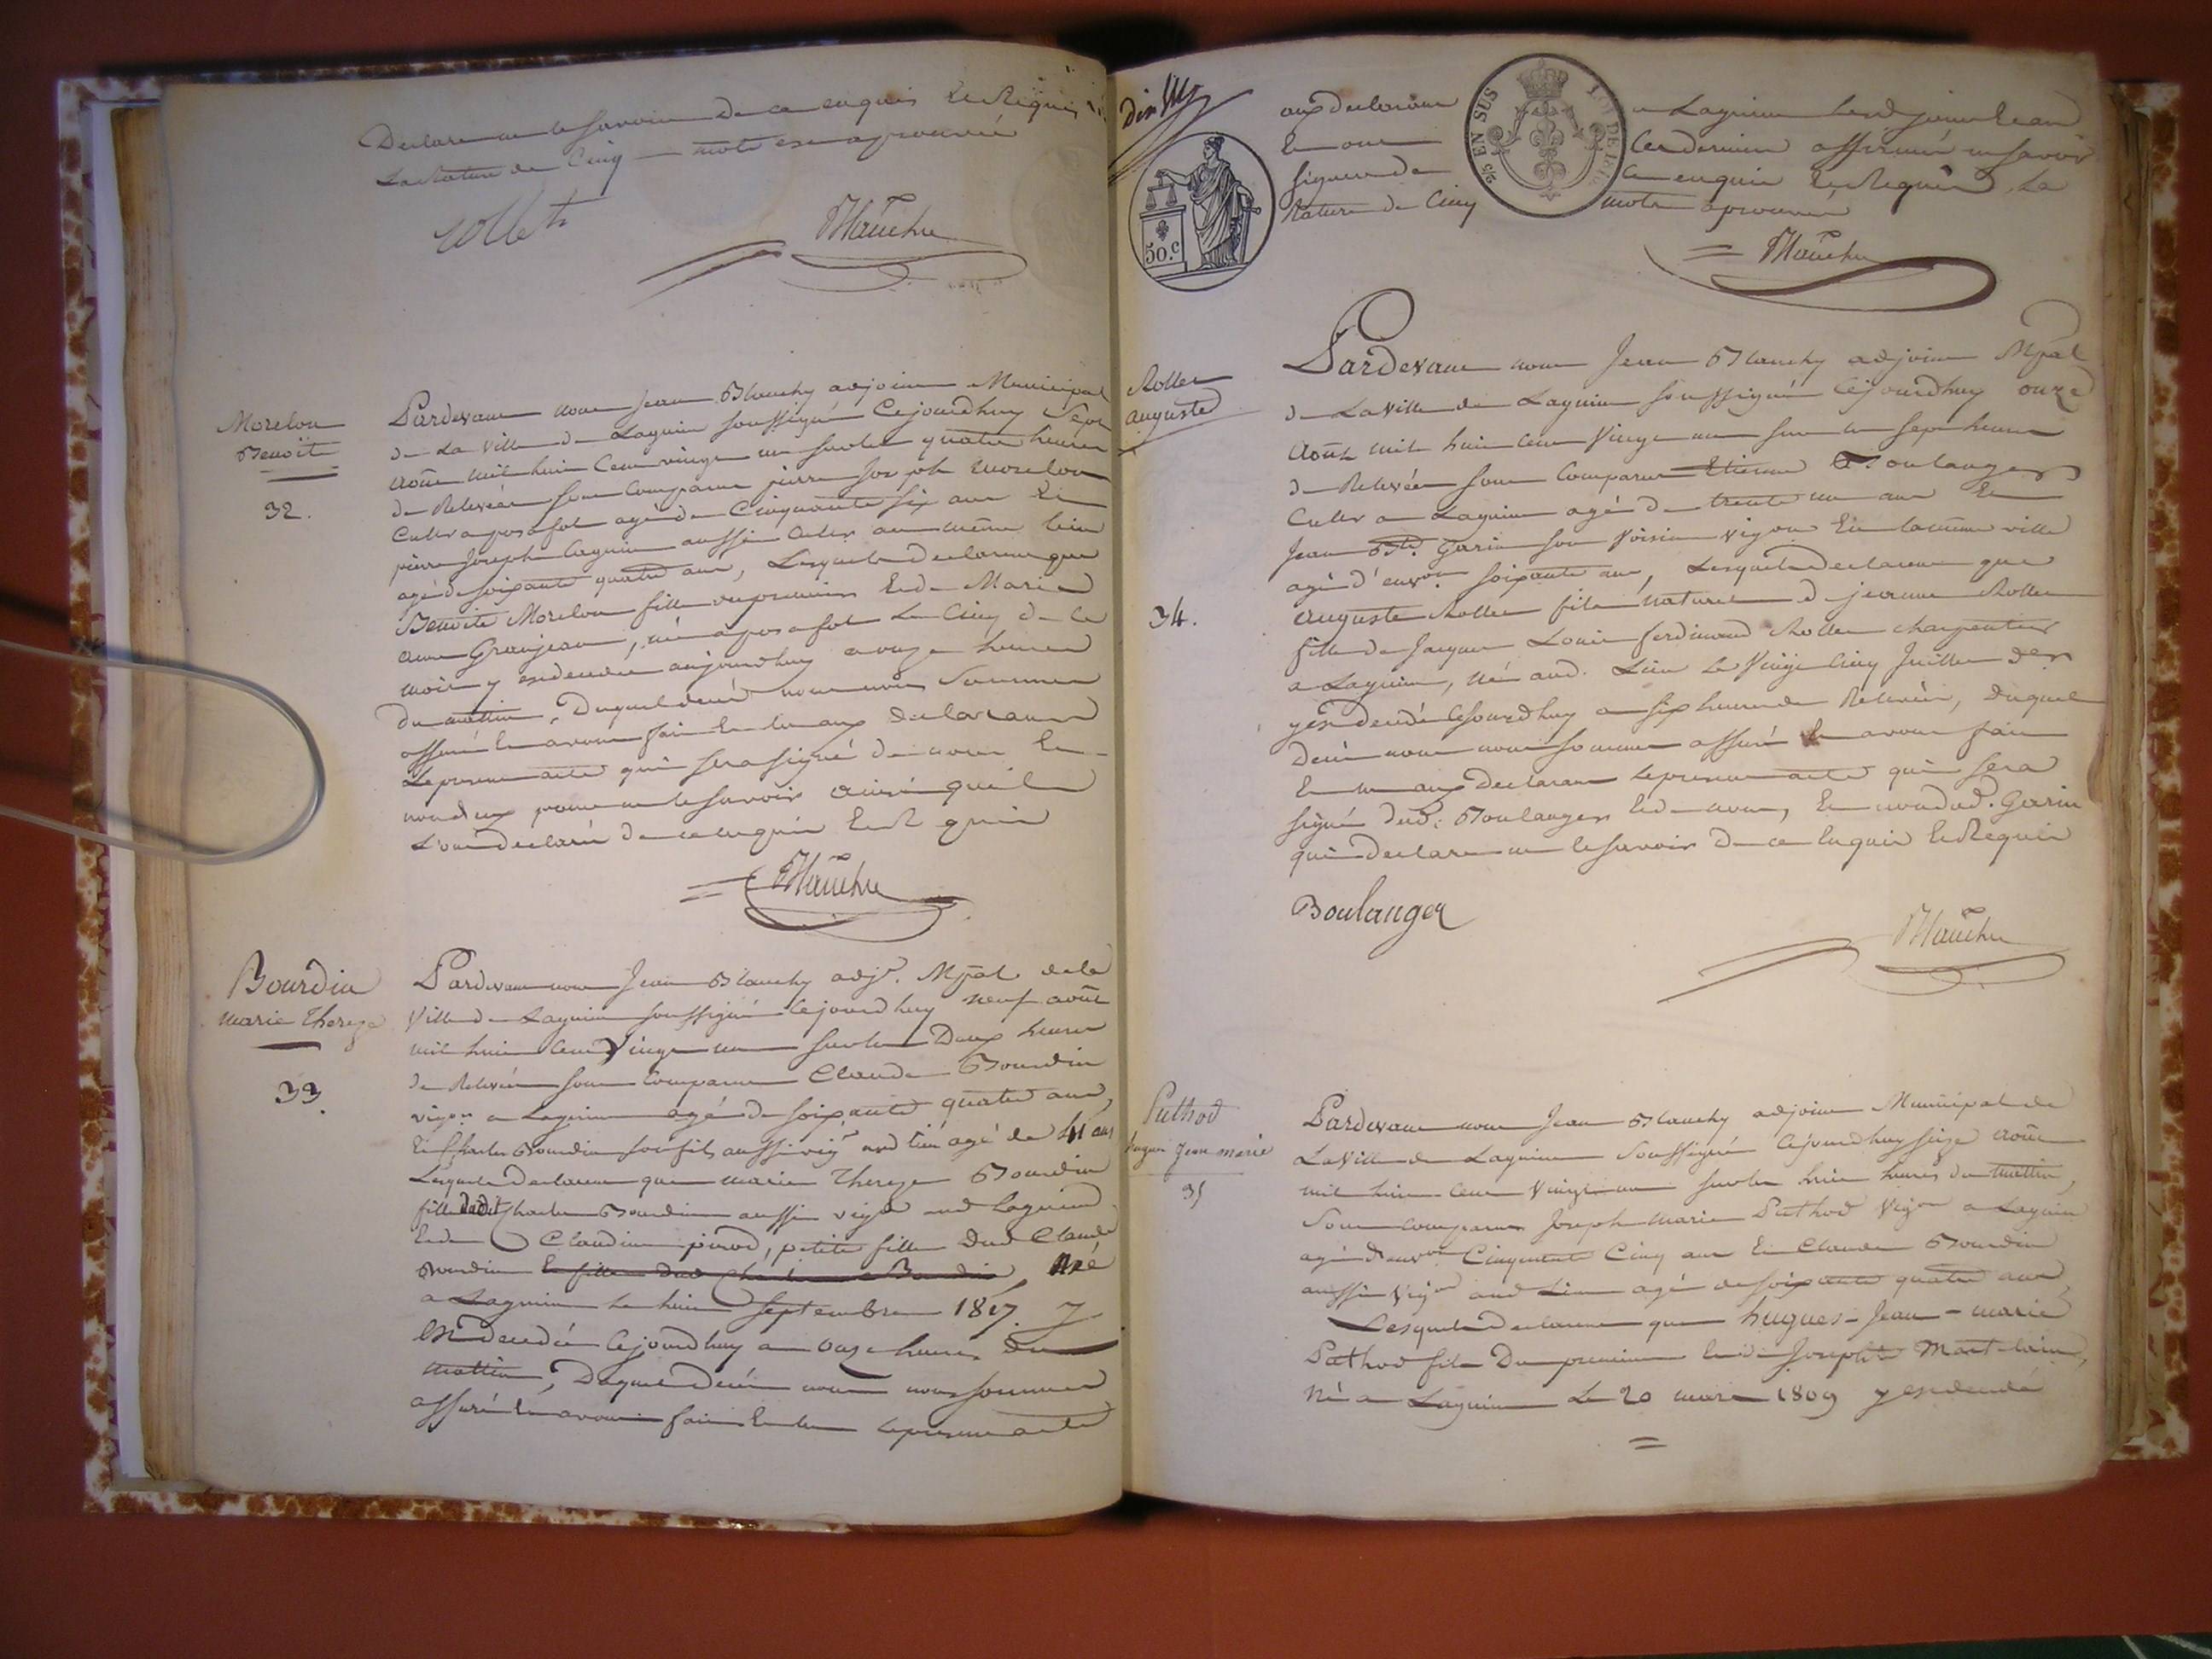 Declare ne le savoir de ce enquis et Requis
La Rature de Cinq mots est approuvée
Collet
Blanchy
Morelon
Benoite
32.
Pardevant nous Jean Blanchy adjoint Municipal
de La Ville de Lagnieu soussigné Cejourdhuy Sept
Août mil huit Cent vingt un sur les quatre heures
de Relevée sont Comparus pierre Joseph Morelon
Culte a posafol agé de Cinquante six ans Et
pierre Joseph Cagnin aussi Culte au même lieu
agé de soixante quatre ans, Lesquels Declarent que
Benoite Morelon fille du premier Et de Marie
anne Granjean, née a posafol Le Cinq de ce
mois y est decedée aujourdhuy a onze heures
du mattin, Duquel decé nous nous Sommes
assuré En avons fait Et lu aux declarants
Le present acte qui sera signé de nous Et
non d'eux pour ne le savoir ainsi qu'ils
L'ont declaré de ce enquis Et Requis
Blanchy
Bourdin
Marie Thereze
33.
Pardevant nous Jean Blanchy adjt. Mpal de la
Ville de Lagnieu soussigné Cejourdhuy neuf août
mil huit Cent Vingt un sur les Deux heures
de Relevée sont Comparus Claude Bourdin
vigon a Lagnieu agé de soixante quatre ans,
Et Charles Bourdin son fils aussi vigon aud lieu agé de 41 ans
Lesquels Declarent que marie Thereze Bourdin
fille dudit Charles Bourdin aussi vigon aud Lagnieu
Et de Claudine pirod, petite fille dud Claude
Bourdin Et fille dud Charles Bourdin, Née
a Lagnieu Le huit Septembre 1817 y
Est decedée Cejourdhuy a onze heures du
mattin, Duquel Decés nous nous sommes
assuré En avons fait Et lu le present acte
dix
50.c
aux declarants a Lagnieu Lesd jour Et an
Et ont Ce dernier affirmé ne savoir
signer de Ce enquis Et Requis La
Rature de Cinq mots aprouvée
2/5 EN SUS
LOI DE 1816
Blanchy
Rollet
auguste
34.
Pardevant nous Jean Blanchy adjoint Mpal
de La Ville de Lagnieu soussigné Cejourdhuy onze
Août mil huit Cent Vingt un sur les sept heures
de Relevée sont Comparus Etienne Boulanger
Culte a Lagnieu agé de trente un ans Et
Jean Bte. Garin son voisin vigon En la même ville
agé d'environ soixante ans, Lesquels Declarent que
Auguste Rollet fils naturel de jeanne Rollet
fille de Jacques Louis ferdinand Rollet charpentier
a Lagnieu, né aud. Lieu Le Vingt Cinq Juillet der
y est decedé Cejourdhuy a six heures de Relevée, duquel
decé nous nous sommes assuré En avons fait
Et lu aux Declarants Le present acte qui sera
signé dud. Boulanger Et de nous, Et non dud. Garin
qui Declare ne le savoir de ce Enquis Et Requis
Boulanger
Blanchy
Pathod
hugues Jean marie
35
Pardevant nous Jean Blanchy adjoint Municipal de
La Ville de Lagnieu Soussigné Cejourdhuy seize Août
mil huit Cent Vingt un sur les huit heures du mattin,
Sont comparus Joseph Marie Pathod Vigon a Lagnieu
agé d'environ Cinquante Cinq ans Et Claude Bourdin
aussi Vigon aud Lieu agé de soixante quatre ans,
Lesquels Declarent que hugues-Jean-marie
Pathod fils Du premier Et de Josephte
Né a Lagnieu Le 20 mars 1809 y est decedé